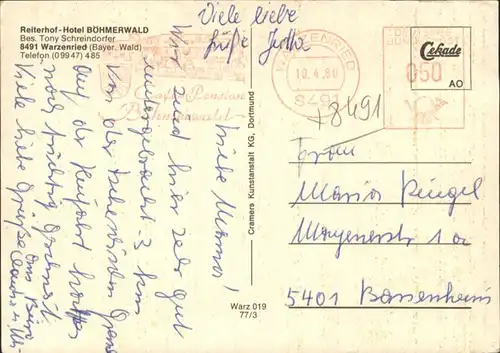 Reiterhof-Hotel BÖHMERWALD
Bes. Tony Schreindorfer
8491 Warzenried (Bayer. Wald)
Telefon (0 99 47) 4 85
Viele liebe
Grüße Jutta
WARZENRIED
10.4.80
8491
Café-Pension
Böhmerwald
DEUTSCHE
BUNDESPOST
050
Cekade
AO
8491
Liebe Mama!
Wir sind hier sehr gut
untergebracht. 3 km
von der
Auf der Herfahrt
noch
Viele liebe Grüße
Cramers Kunstanstalt KG, Dortmund
Warz 019
77/3
Frau
Maria Ringel
Mayenerstr. 1a
5401 Bassenheim